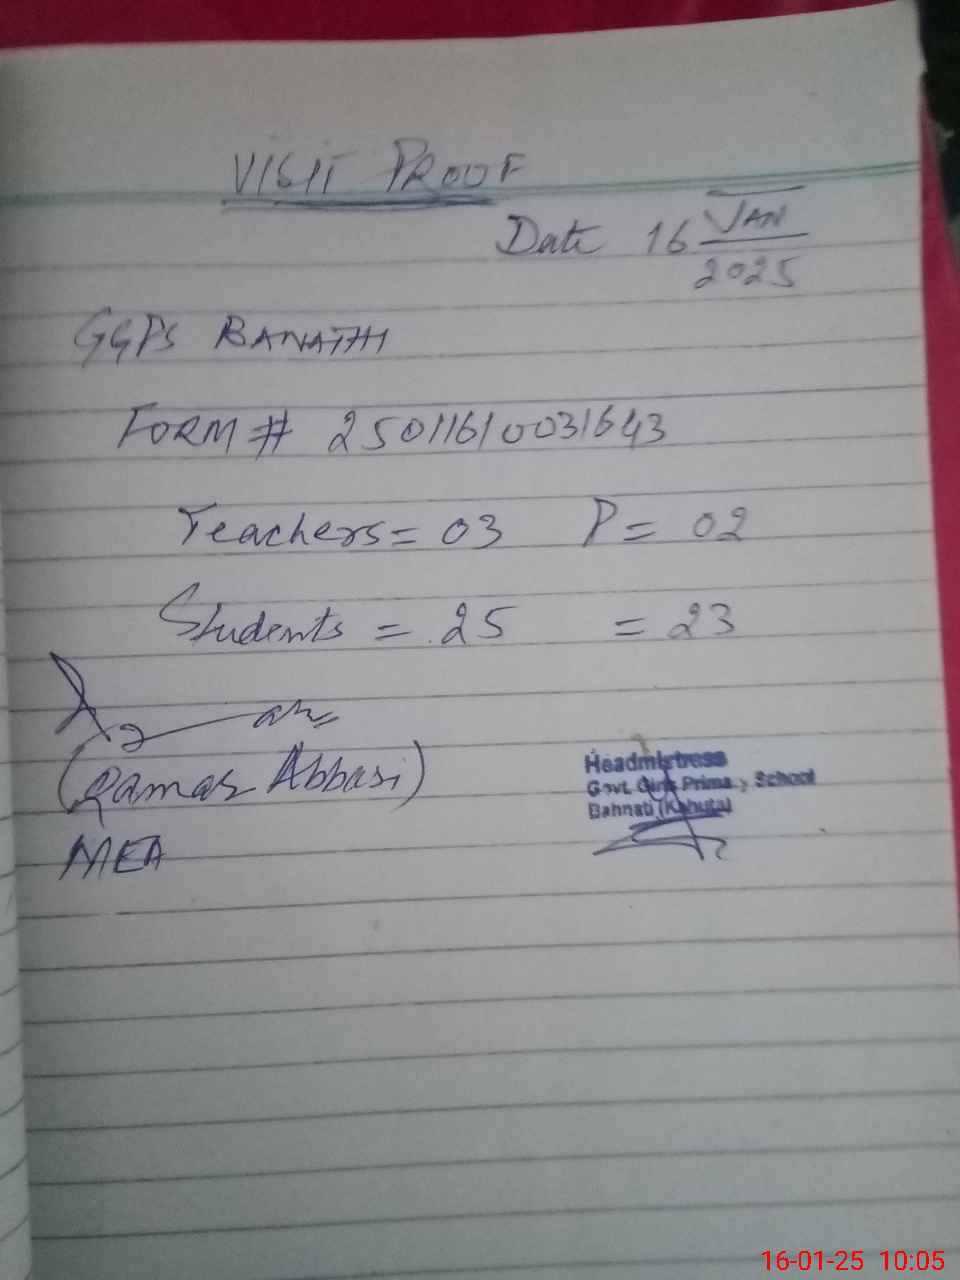 VISIT PROOF
Date 16 JAN
2025
GGPS BANATHI
FORM # 25011610031643
Teachers = 03 P = 02
Students = 25 = 23
(Qamar Abbasi)
MEA
Headmistress
Govt. Girls Primary School
Bahnati (Kahuta)
16-01-25 10:05